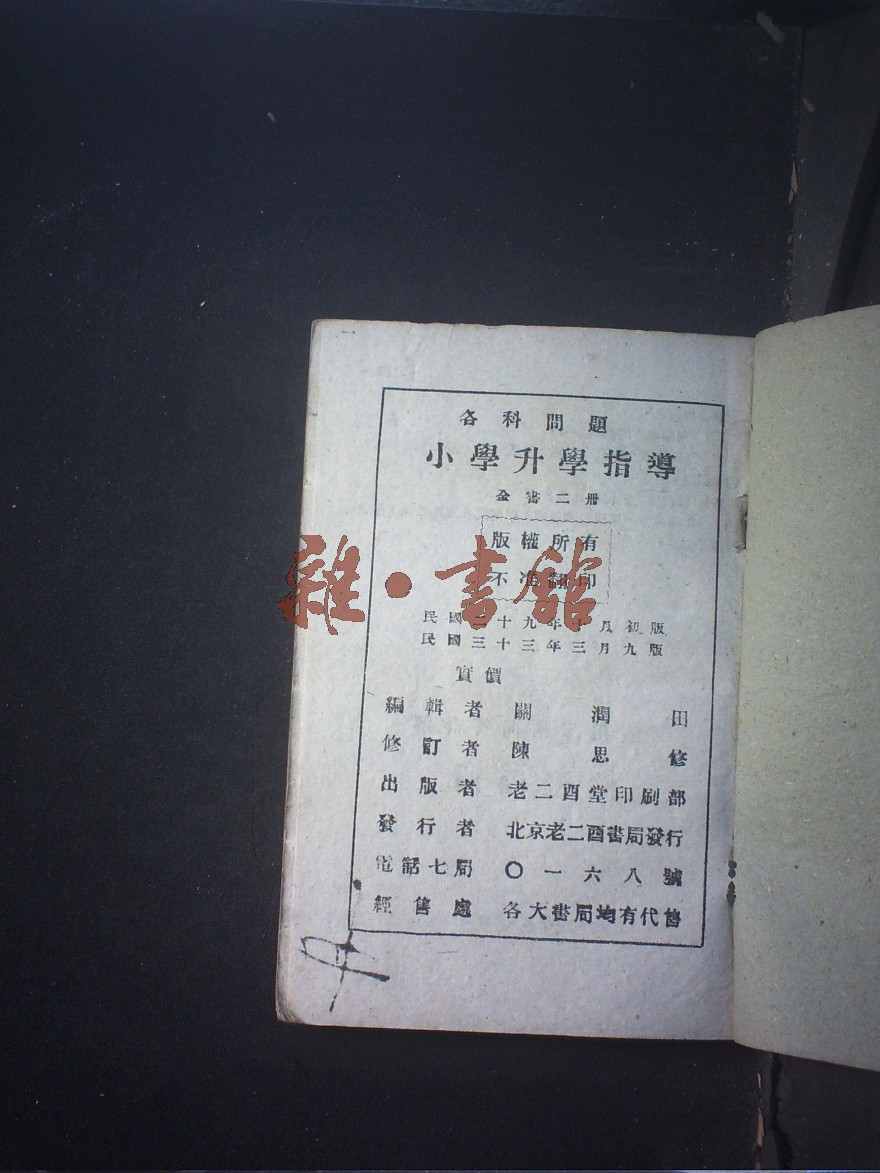 各科問題
小學升學指導
全書二冊
版權所有
不准翻印
雜·書館
民國二十九年十月初版
民國三十三年三月九版
實價
編輯者 關潤田
修訂者 陳思修
出版者 老二酉堂印刷部
發行者 北京老二酉書局發行
電話七局 〇一六八號
經售處 各大書局均有代售